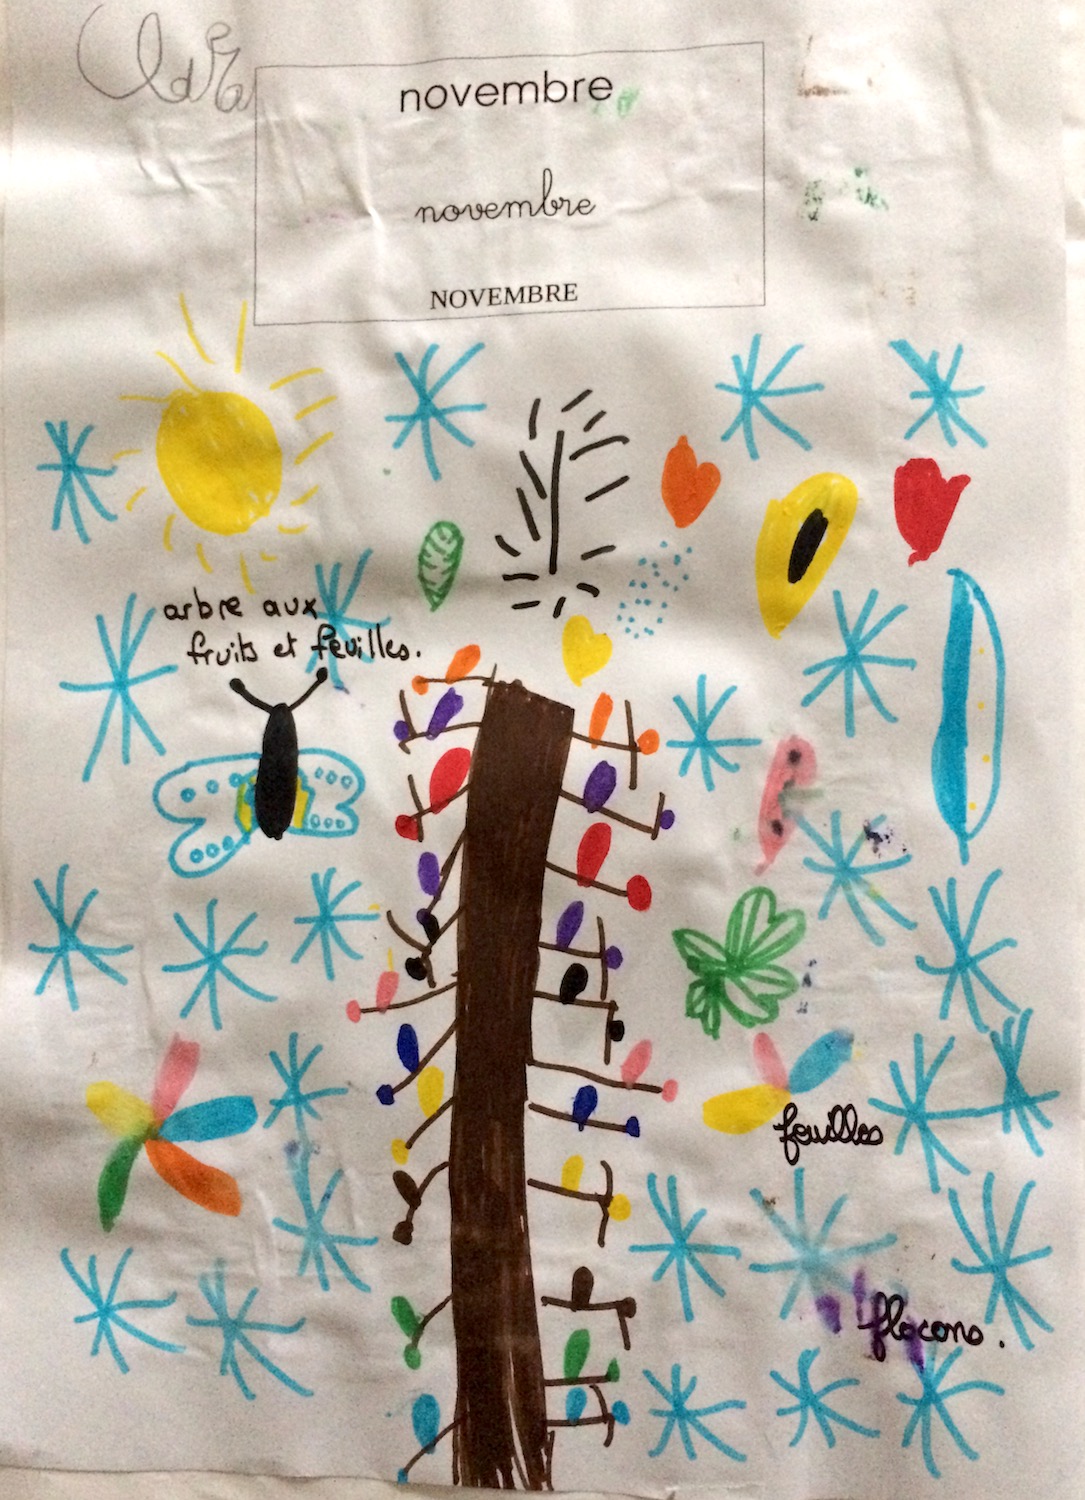 Clara
novembre
novembre
NOVEMBRE
arbre aux
fruits et feuilles.
feuilles
flocons.